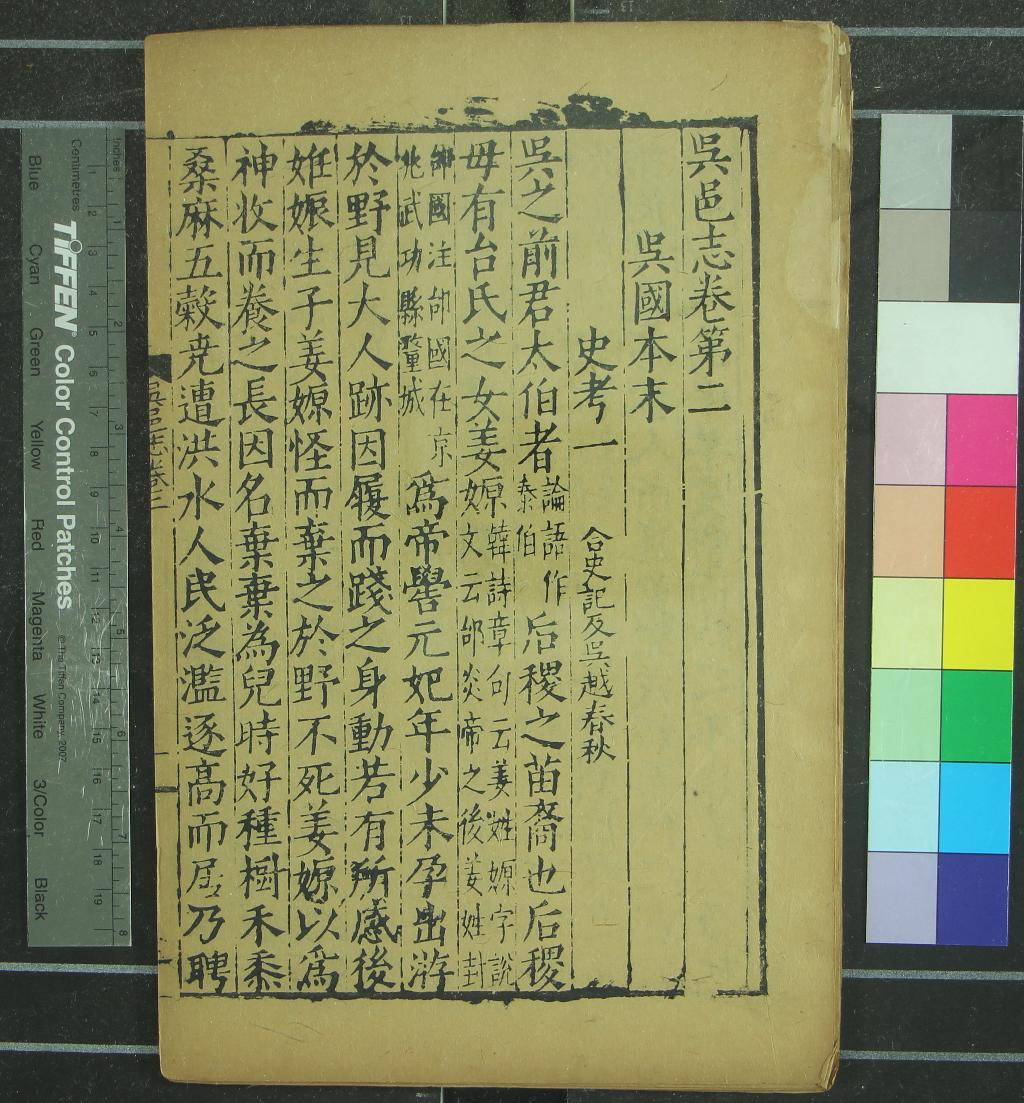 吳邑志卷第二
吳國本末
史考一 合史記及吳越春秋
吳之前君太伯者論語作泰伯后稷之苗裔也后稷
毋有台氏之女姜嫄韓詩章句云姜姓嫄字說文云邰炎帝之後姜姓封
邰國注邰國在京兆武功縣斄城爲帝嚳元妃年少未孕出游
於野見大人跡因履而踐之身動若有所感後
姙娠生子姜嫄怪而棄之於野不死姜嫄以爲
神收而養之長因名棄棄為兒時好種樹禾黍
桑麻五穀堯遭洪水人民泛濫逐高而居乃聘
吳邑志卷
TIFFEN® Color Control Patches
© The Tiffen Company, 2007
Inches 1 2 3 4 5 6 7 8
Centimetres 1 2 3 4 5 6 7 8 9 10 11 12 13 14 15 16 17 18 19
Blue Cyan Green Yellow Red Magenta White 3/Color Black